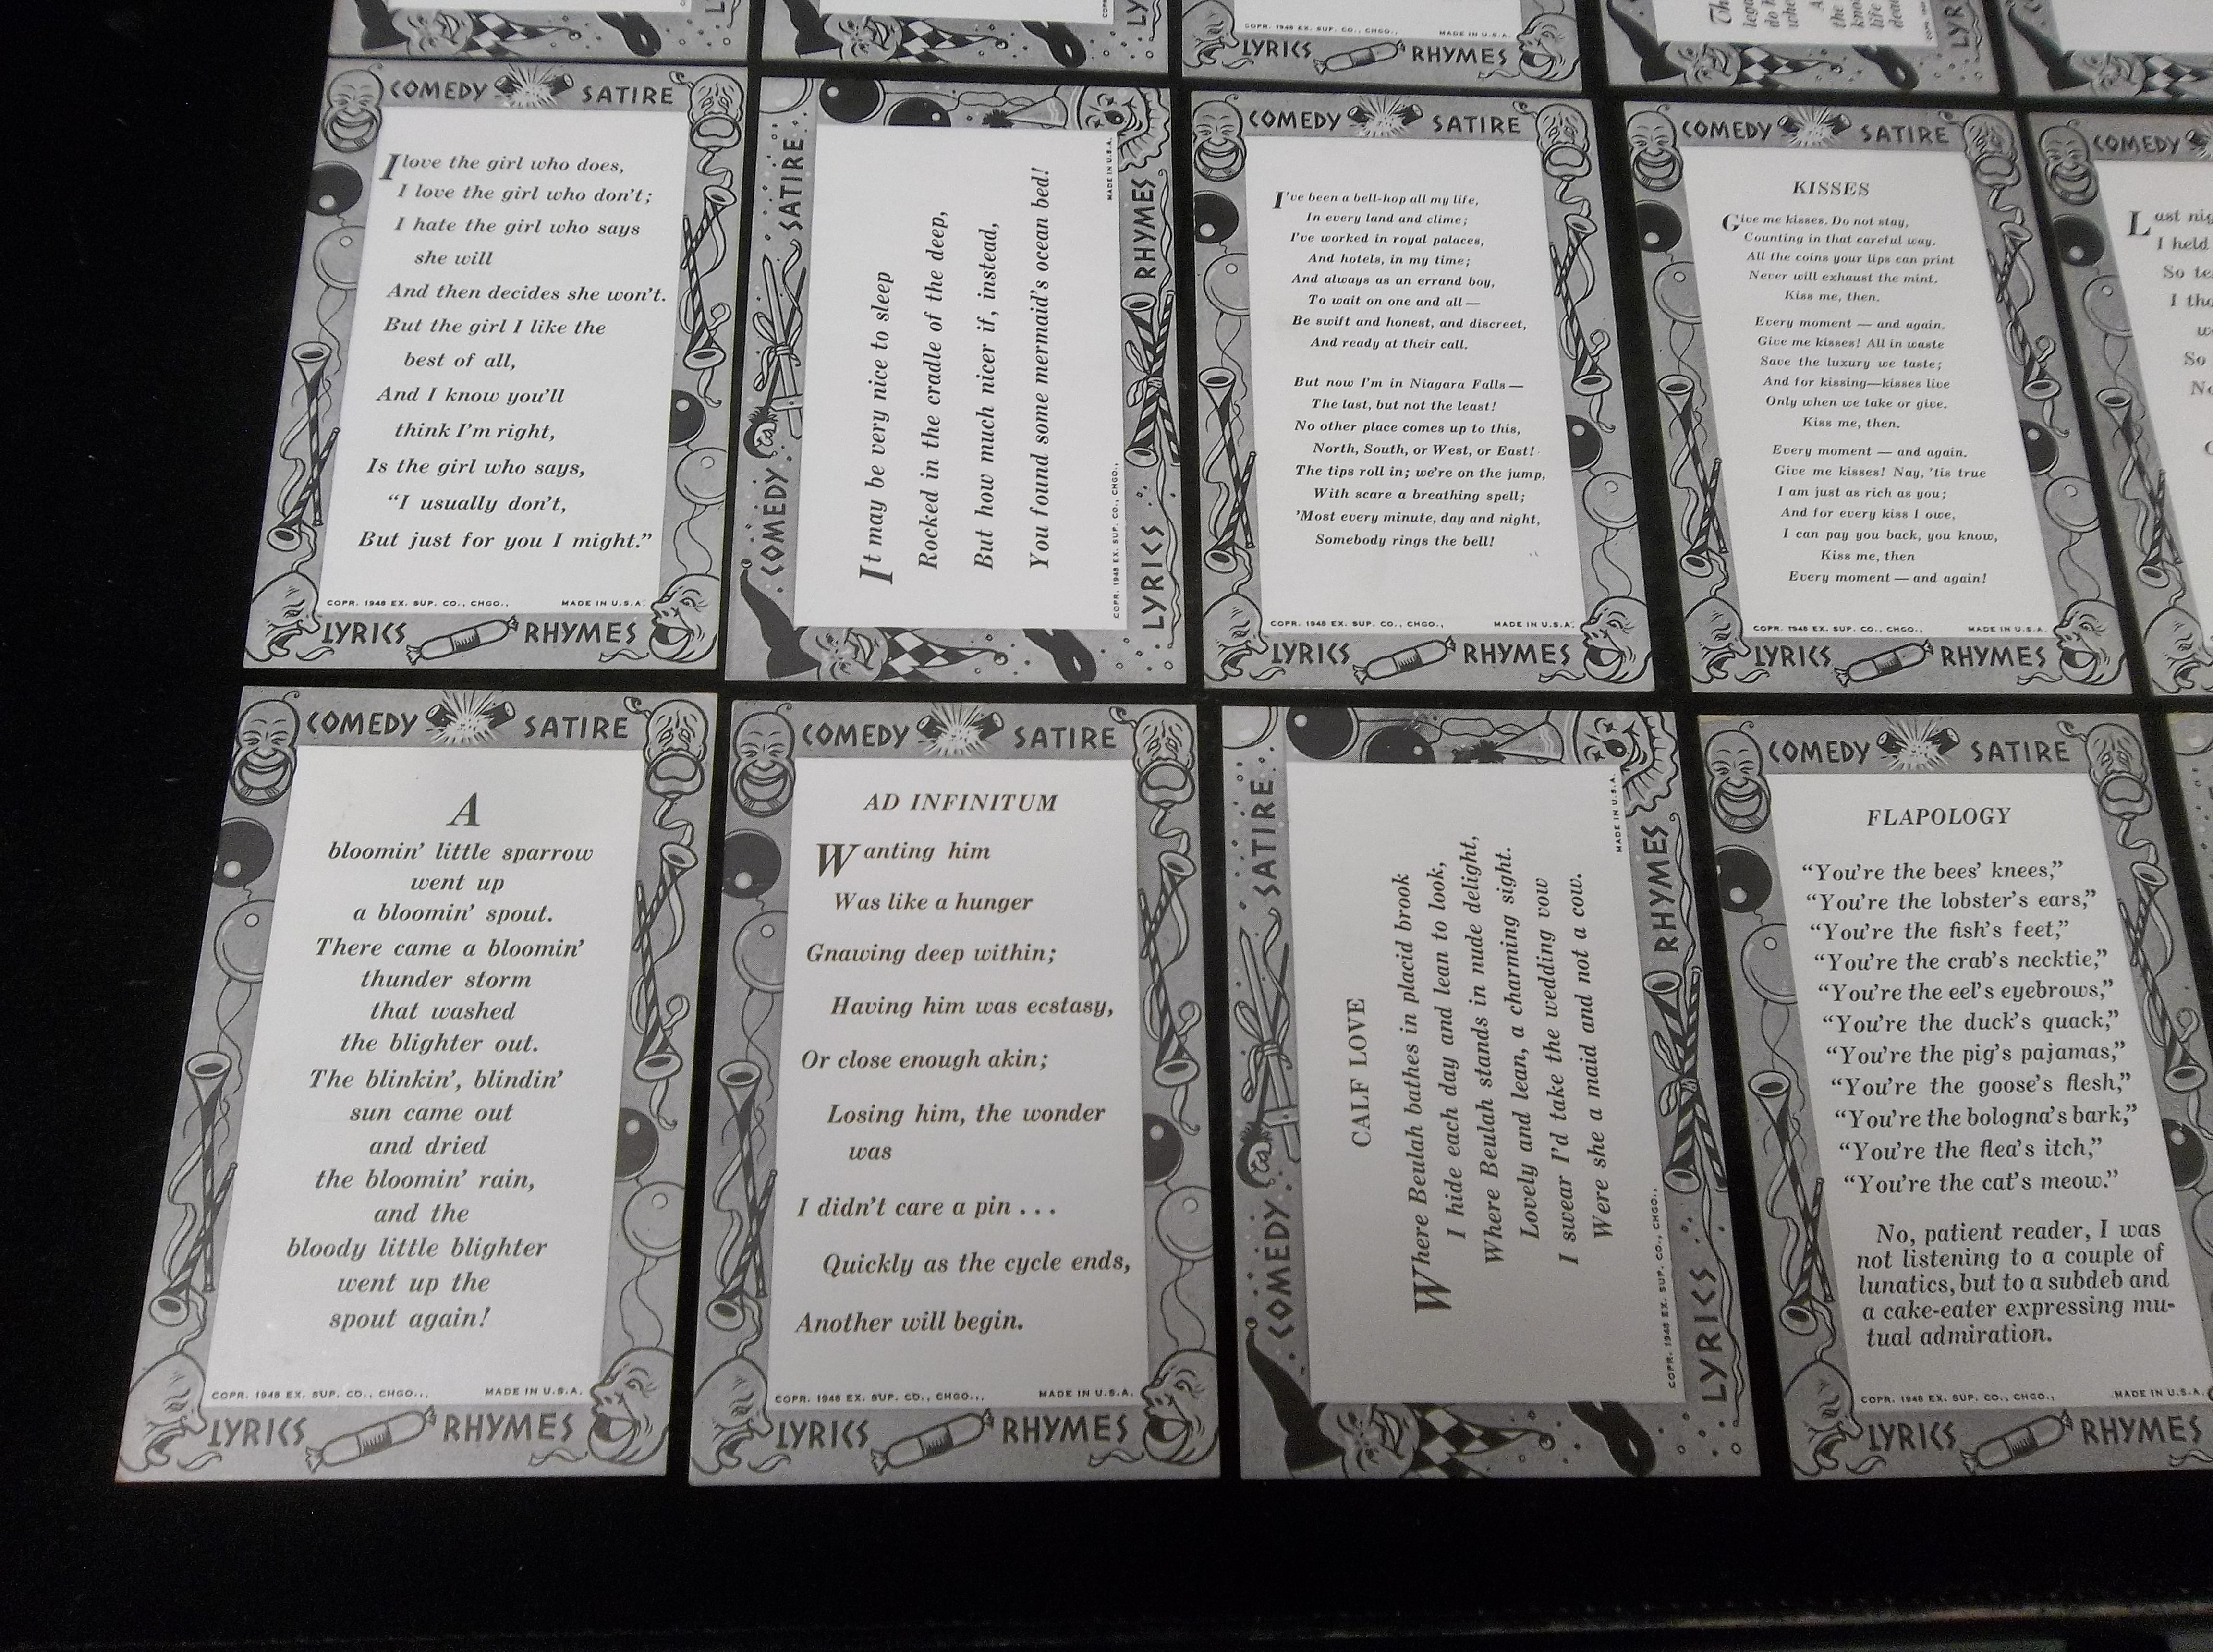 COPR. 1948 EX. SUP. CO., CHGO., MADE IN U.S.A.
LYRICS RHYMES
COMEDY SATIRE
I love the girl who does,
I love the girl who don't;
I hate the girl who says
she will
And then decides she won't.
But the girl I like the
best of all,
And I know you'll
think I'm right,
Is the girl who says,
"I usually don't,
But just for you I might."
COPR. 1948 EX. SUP. CO., CHGO., MADE IN U.S.A.
LYRICS RHYMES
COMEDY SATIRE
It may be very nice to sleep
Rocked in the cradle of the deep,
But how much nicer if, instead,
You found some mermaid's ocean bed!
COPR. 1948 EX. SUP. CO., CHGO., MADE IN U.S.A.
LYRICS RHYMES
COMEDY SATIRE
I've been a bell-hop all my life,
In every land and clime;
I've worked in royal palaces,
And hotels, in my time;
And always as an errand boy,
To wait on one and all—
Be swift and honest, and discreet,
And ready at their call.
But now I'm in Niagara Falls—
The last, but not the least!
No other place comes up to this,
North, South, or West, or East!
The tips roll in; we're on the jump,
With scare a breathing spell;
'Most every minute, day and night,
Somebody rings the bell!
COPR. 1948 EX. SUP. CO., CHGO., MADE IN U.S.A.
LYRICS RHYMES
COMEDY SATIRE
KISSES
Give me kisses. Do not stay,
Counting in that careful way.
All the coins your lips can print
Never will exhaust the mint.
Kiss me, then.
Every moment — and again.
Give me kisses! All in waste
Save the luxury we taste;
And for kissing—kisses live
Only when we take or give.
Kiss me, then.
Every moment — and again.
Give me kisses! Nay, 'tis true
I am just as rich as you;
And for every kiss I owe,
I can pay you back, you know,
Kiss me, then
Every moment — and again!
COPR. 1948 EX. SUP. CO., CHGO., MADE IN U.S.A.
LYRICS RHYMES
COMEDY
Last
I held
So
I
So
COMEDY SATIRE
A
bloomin' little sparrow
went up
a bloomin' spout.
There came a bloomin'
thunder storm
that washed
the blighter out.
The blinkin', blindin'
sun came out
and dried
the bloomin' rain,
and the
bloody little blighter
went up the
spout again!
COPR. 1948 EX. SUP. CO., CHGO., MADE IN U.S.A.
LYRICS RHYMES
COMEDY SATIRE
AD INFINITUM
Wanting him
Was like a hunger
Gnawing deep within;
Having him was ecstasy,
Or close enough akin;
Losing him, the wonder
was
I didn't care a pin . . .
Quickly as the cycle ends,
Another will begin.
COPR. 1948 EX. SUP. CO., CHGO., MADE IN U.S.A.
LYRICS RHYMES
COMEDY SATIRE
CALF LOVE
Where Beulah bathes in placid brook
I hide each day and lean to look,
Where Beulah stands in nude delight,
Lovely and lean, a charming sight.
I swear I'd take the wedding vow
Were she a maid and not a cow.
COPR. 1948 EX. SUP. CO., CHGO., MADE IN U.S.A.
LYRICS RHYMES
COMEDY SATIRE
FLAPOLOGY
"You're the bees' knees,"
"You're the lobster's ears,"
"You're the fish's feet,"
"You're the crab's necktie,"
"You're the eel's eyebrows,"
"You're the duck's quack,"
"You're the pig's pajamas,"
"You're the goose's flesh,"
"You're the bologna's bark,"
"You're the flea's itch,"
"You're the cat's meow."
No, patient reader, I was
not listening to a couple of
lunatics, but to a subdeb and
a cake-eater expressing mu-
tual admiration.
COPR. 1948 EX. SUP. CO., CHGO., MADE IN U.S.A.
LYRICS RHYMES